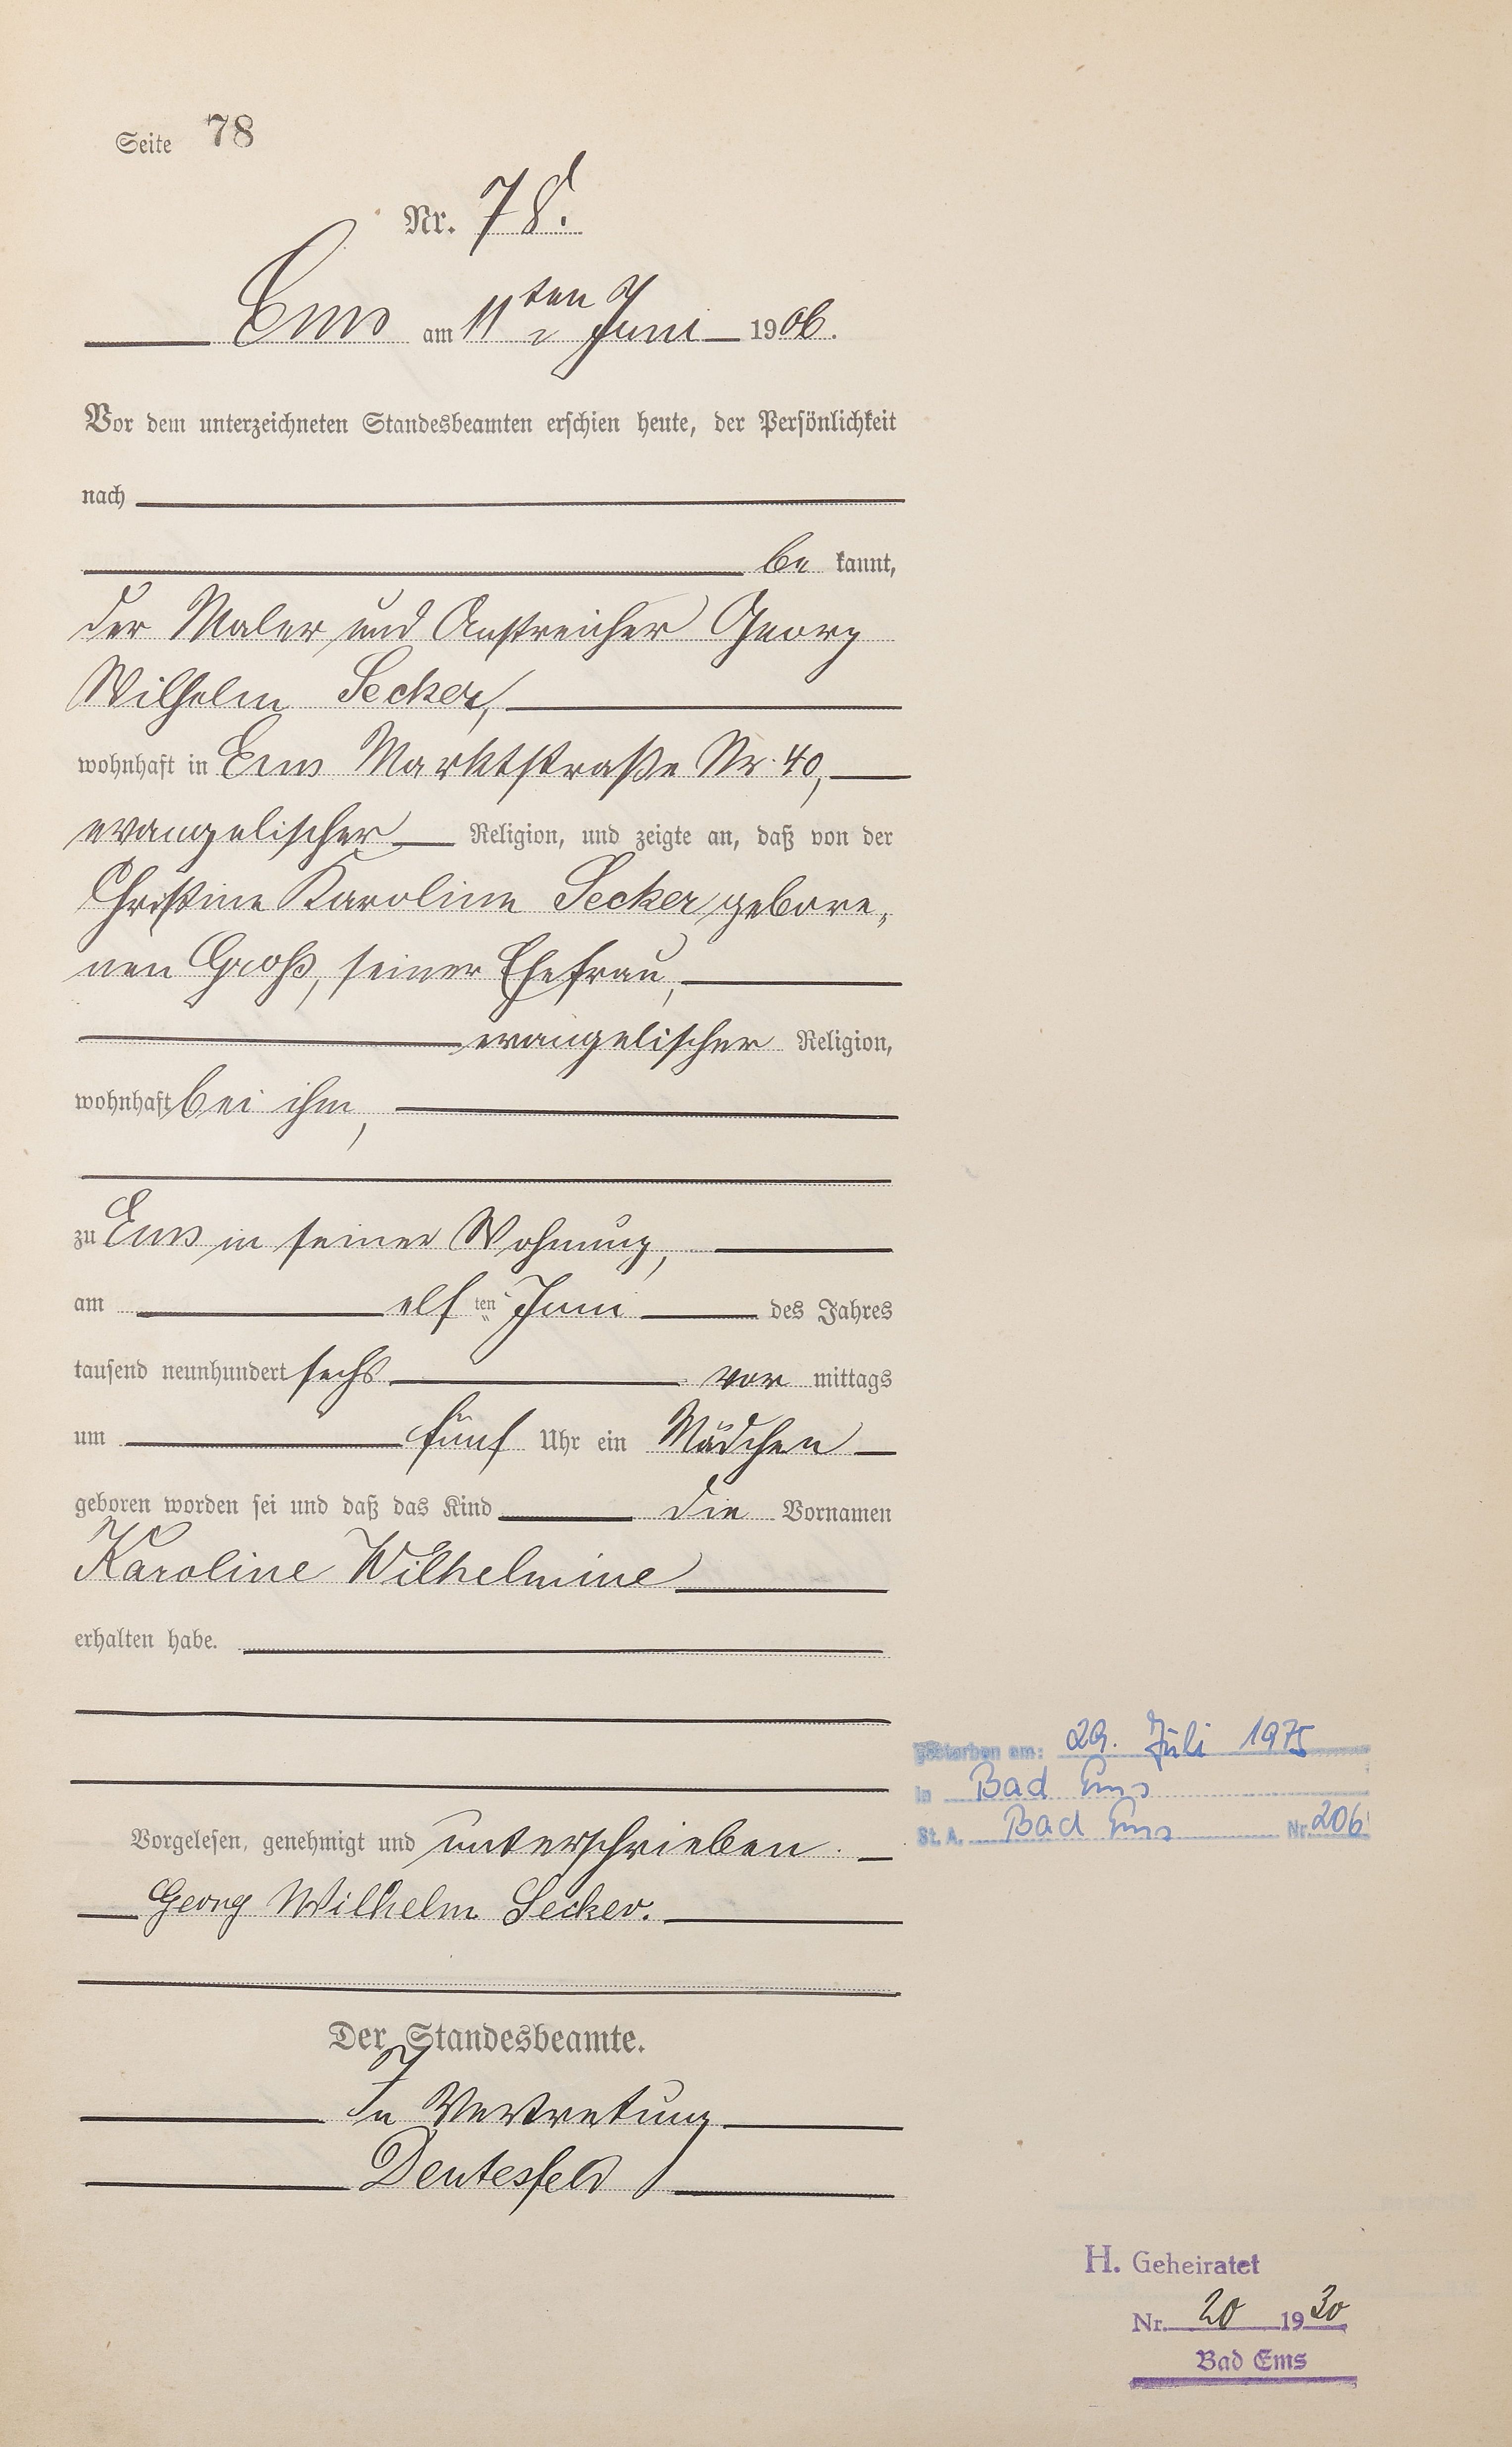 Seite 78
Nr. 78.
Ems am 11ten Juni 1906.
Vor dem unterzeichneten Standesbeamten erschien heute, der Persönlichkeit
nach
be kannt,
der Maler und Anstreicher Georg
Wilhelm Secker,
wohnhaft in Ems Marktstraße Nr. 40,
evangelischer Religion, und zeigte an, daß von der
Christine Karoline Secker gebore„
nen Groß, seiner Ehefrau,
evangelischer Religion,
wohnhaft bei ihm,
zu Ems in seiner Wohnung,
am elf ten Juni des Jahres
tausend neunhundert sechs vor mittags
um fünf Uhr ein Mädchen
geboren worden sei und daß das Kind die Vornamen
Karoline Wilhelmine
erhalten habe.
gestorben am: 29. Juli 1975
in Bad Ems
St. A. Bad Ems Nr. 206
Vorgelesen, genehmigt und unterschrieben.
Georg Wilhelm Secker.
Der Standesbeamte.
In Vertretung
Deutesfeld
H. Geheiratet
Nr. 20 1930
Bad Ems